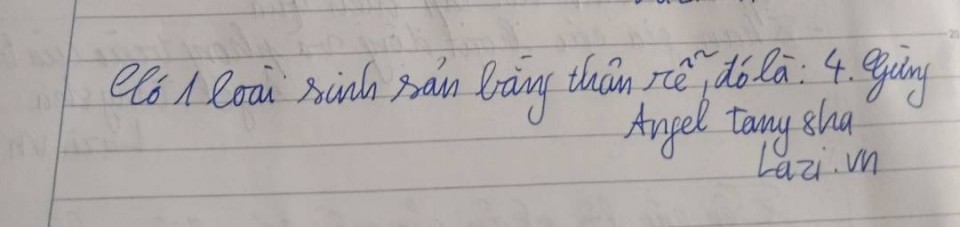 Có 1 loài sinh sản bằng thân rễ, đó là: 4. Gừng
Angel tany sha
Lazi.vn